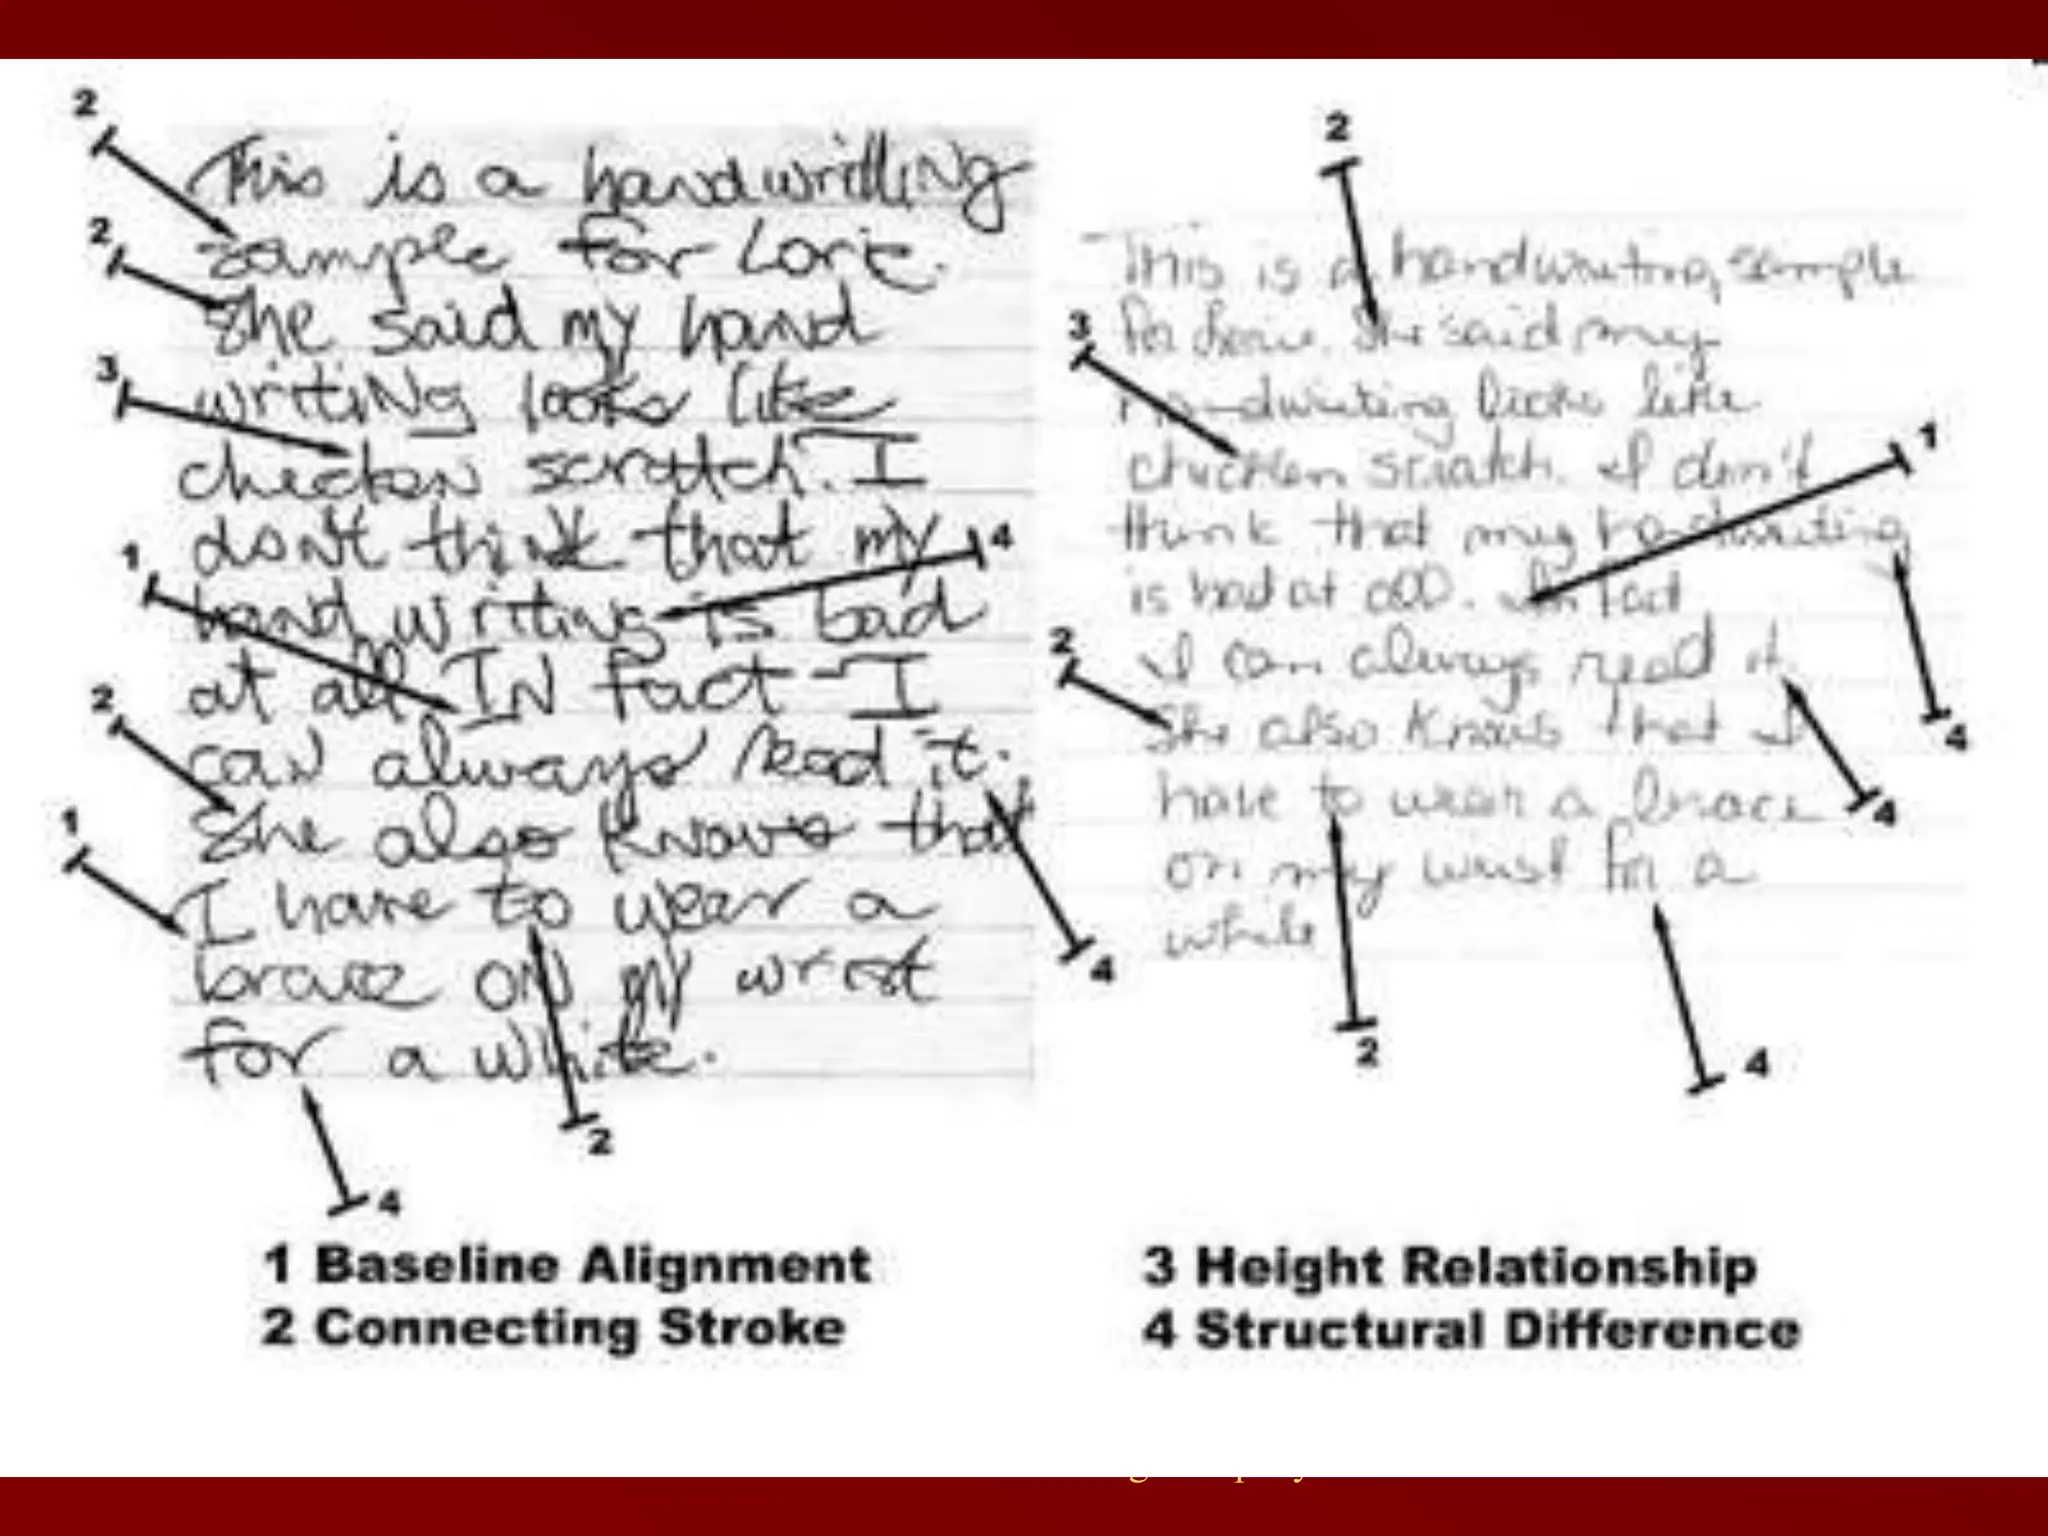 This is a handwritting
sample for Lorie.
She said my hand
writing looks like
checken scratch. I
don't think that my
hand writing is bad
at all IN fact I
can always read it.
She also knows that
I have to wear a
brace on my wrist
for a while.
This is a handwriting sample
for Lorie. She said my
handwriting looks like
chicken scratch. I don't
think that my handwriting
is bad at all. In fact
I can always read it.
She also knows that I
have to wear a brace
on my wrist for a
while
2
2
3
1
2
1
4
4
2
4
2
3
1
2
4
4
2
4
1 Baseline Alignment
2 Connecting Stroke
3 Height Relationship
4 Structural Difference